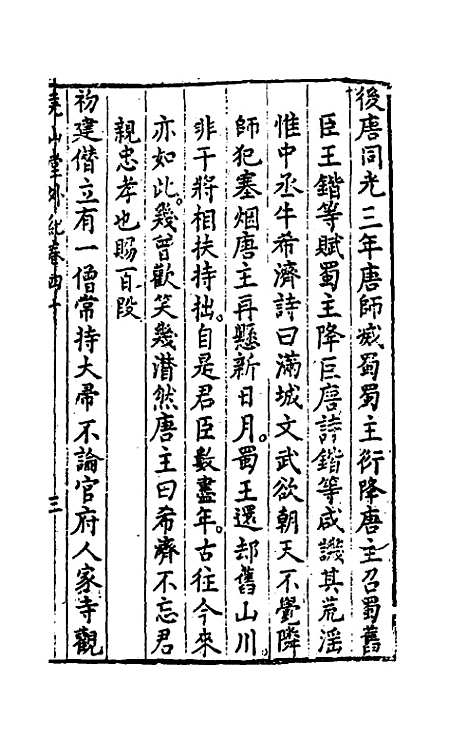 後唐同光三年唐師威蜀蜀主衍降唐主召蜀舊
臣王鍇等賦蜀主降臣唐詩鍇等咸譏其荒淫
惟中丞牛希濟詩曰滿城文武欲朝天不覺隣
師犯塞烟唐主再懸新日月。蜀王還却舊山川。
非干將相扶持拙。自是君臣數盡年。古往今來
亦如此。幾曾歡笑幾潸然唐主曰希濟不忘君
親忠孝也賜百段
初建僭立有一僧常持大帚不論官府人家寺觀
堯山堂外紀卷四十 三